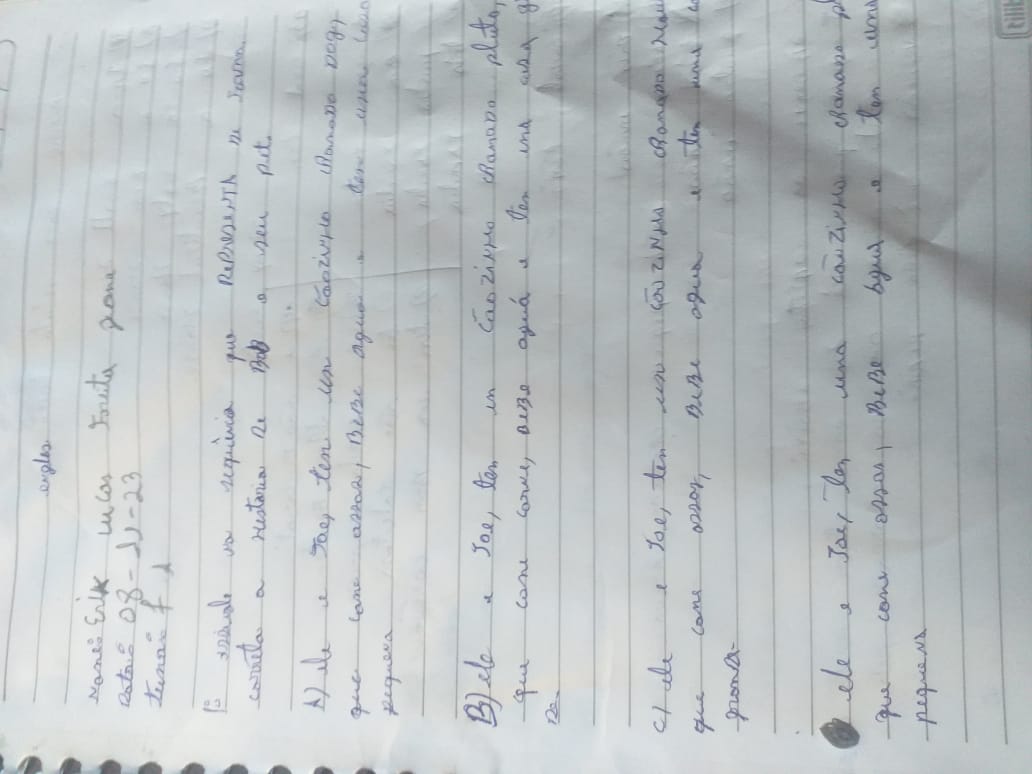 ingles
Nome: Erik Lucas
Data: 08-11-23
Turma: F 1
1= assinale na sequência que Representa De Forma
correta a Historia De Bob e seu pet.
A) ele e Joe, ten un cãozinho chamado Dog,
que cone ossos, BeBe agua e ten uma casa
pequena
B) ele e Joe, ten un cãozinho chamado pluto,
que cone carne, BeBe aguá e ten una casa g
De
C) ele e Joe, ten un cãozinho chamado
que cone ossos, BeBe agua e ten uma
grande
ele e Joe, ten uma cãozinho, chamado pl
que cone ossos, BeBe agua e ten uma
pequena
tili